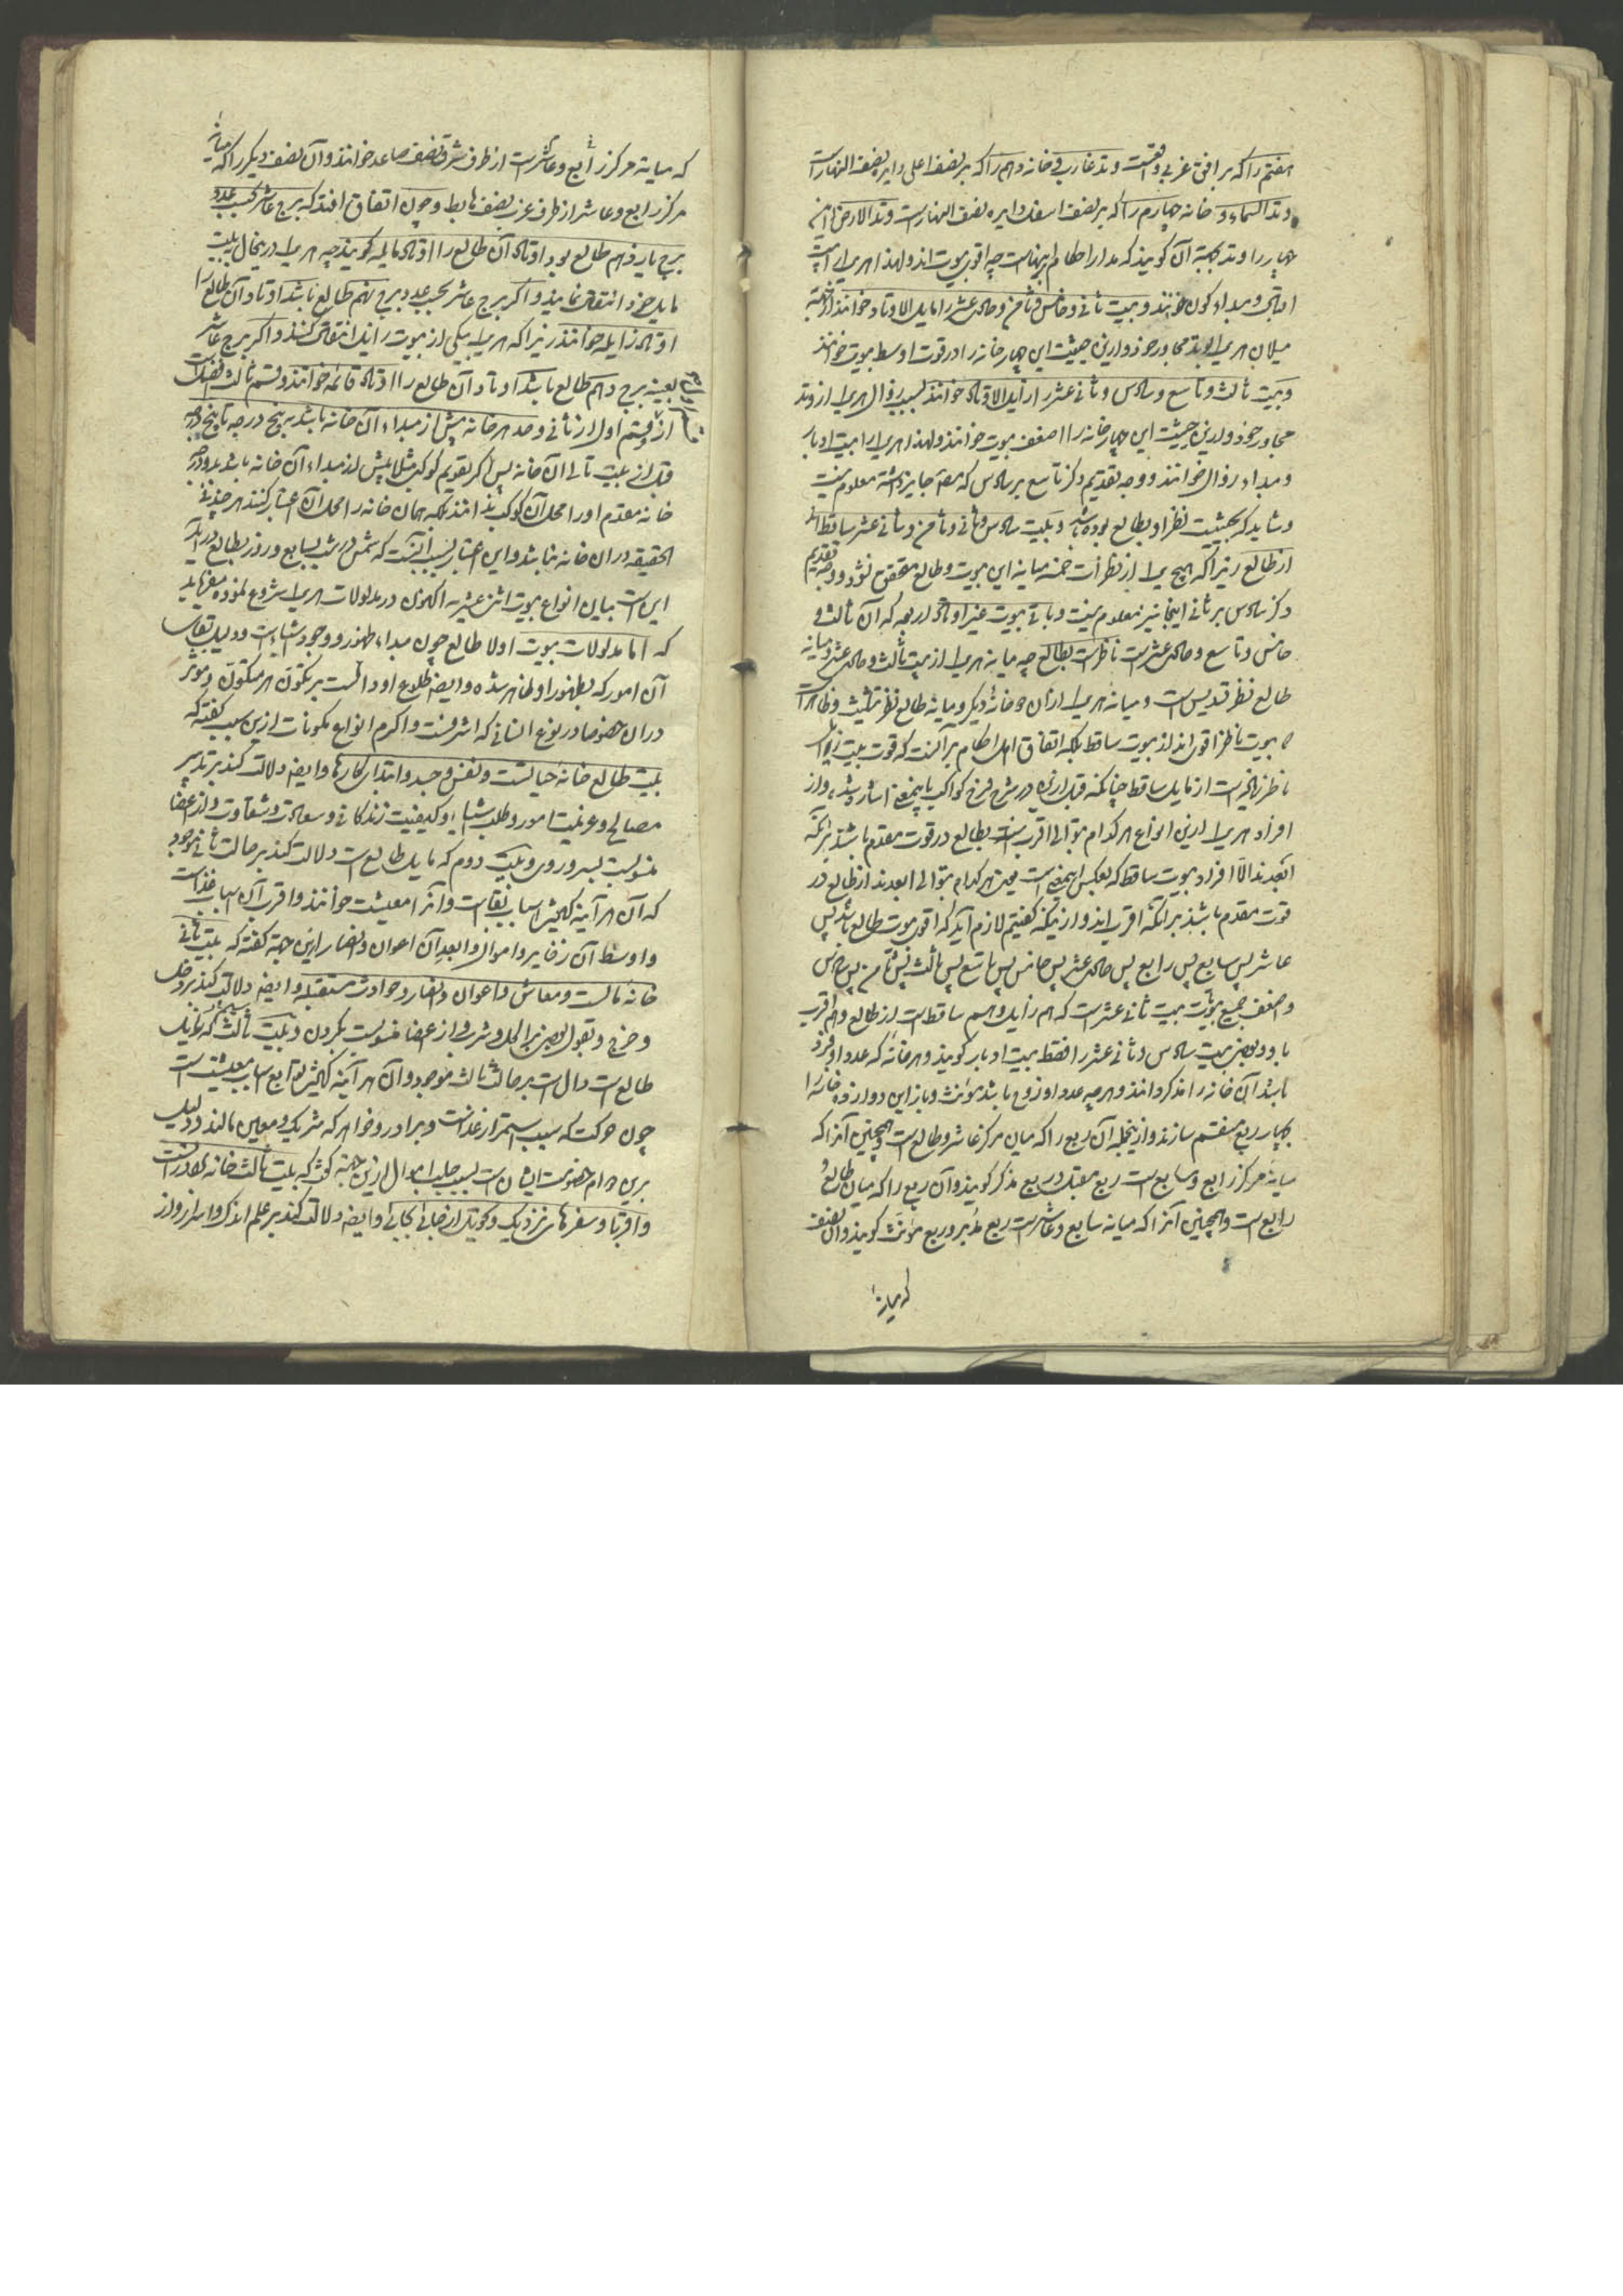 هفتم را که بر افق غربی واقعست وتد غارب و خانه دهم را که بر نصف اعلی دایره نصف النهارست
وتد السماء و خانه چهارم را که بر نصف اسفل دایره نصف النهارست وتد الارض و این
چهار را وتد بجهة آن گویند که مدار احکام برینهاست چه اقوی بیوت اند ولهذا هر یک را بیت
اقبال و مبداء کون خوانند و بیت ثانی و خامس و ثامن و حادی عشر را مایل الاوتاد خوانند از جهة
میلان هر یک بوتد مجاور خود و ازین حیثیت این چهار خانه را در قوت اوسط بیوت خوانند
و بیت ثالث و تاسع و سادس و ثانی عشر را زایل الاوتاد خوانند بسبب زوال هر یک از وتد
مجاور خود و ازین حیثیت این چهار خانه را اضعف بیوت خوانند ولهذا هر یک را بیت ادبار
و مبداء زوال خوانند و وجه تقدیم ذکر تاسع بر سادس که مص جایز داشته معلوم نیست
و شاید که بحیثیت نظر او بطالع بوده باشد و بیت سادس و ثانی و ثامن و ثانی عشر ساقط اند
از طالع زیرا که هیچ یک از نظرات خمسه میانه این بیوت و طالع متحقق نشود و وجه تقدیم
ذکر سادس بر ثانی اینجا نیز معلوم نیست و باقی بیوت غیر اوتاد اربعه که آن ثالث و
خامس و تاسع و حادی عشرست ناظرست بطالع چه میانه هر یک از بیت ثالث و حادی عشر و میانه
طالع نظر تسدیس است و میانه هر یک از آن دو خانه دیگر و میانه طالع نظر تثلیث و ظاهرا
که بیوت ناظر اقوی اند از بیوت ساقط بلکه اتفاق اهل احکام بر آنست که قوت بیت زایل
ناظر زیادترست از مایل ساقط چنانکه قبل ازین در شرح فرح کواکب باینمعنی اشاره شد و از
افراد هر یک ازین انواع هر کدام بتوالی اقرب است بطالع در قوت مقدم باشد بر آنکه
ابعدند الا افراد بیوت ساقط که بعکس اینمعنی است یعنی هر کدام بتوالی ابعدند از طالع در
قوت مقدم باشند بر آنکه اقرب اند و از اینکه گفتیم لازم آید که اقوی بیوت طالع باشد پس
عاشر پس سابع پس رابع پس حادی عشر پس خامس پس تاسع پس ثالث پس ثانی پس ثامن پس سادس
و اضعف جمیع بیوت بیت ثانی عشرست که هم زایل و هم ساقط است از طالع و هم اقرب
باو و بعضی بیت سادس و ثانی عشر را فقط بیت ادبار گویند و هر خانه که عدد او فرد
باشد آن خانه را مذکر دانند و هر چه عدد او زوج باشد مؤنث و باز این دوازده خانه را
بچهار ربع منقسم سازند و از آنجمله آن ربع را که میان مرکز عاشر و طالع است و همچنین آنرا که
میانه مرکز رابع و سابع است ربع مقبل و ربع مذکر گویند و آن ربع را که میان طالع و
رابع است و همچنین آنرا که میانه سابع و عاشرست ربع مدبر و ربع مؤنث گویند و آن نصف
که میانه
که میانه مرکز رابع و عاشرست از طرف شرق نصف صاعد خوانند و آن نصف دیگر را که میانه
مرکز رابع و عاشر از طرف غرب نصف هابط و چون اتفاق افتد که برج عاشر بحسب عدد
برج یازدهم طالع بود اوتاد آن طالع را اوتاد مایله گویند چه هر یک درینحال به بیت
مایل خود انتقال نمایند و اگر برج عاشر بحسب عدد برج نهم طالع باشد اوتاد آن طالع را
اوتاد زایله خوانند زیرا که هر یک بیکی از بیوت زایل انتقال کنند و اگر برج عاشر
بعینه برج دهم طالع باشد اوتاد آن طالع را اوتاد قائمه خوانند و قسم ثالث افضل است
از قسم اول از ثانی و حد هر خانه پیش از مبداء آن خانه باشد به پنج درجه تا پنج درجه
قبل از بیت تالی آن خانه پس اگر تقویم کوکب مثلا پیش از مبداء آن خانه باشد بدو درجه
خانه مقدم او را محل آن کوکب ندانند بلکه همان خانه را محل آن اعتبار کنند هر چند فی
الحقیقه در آن خانه نباشد و این اعتبار بسبب آنست که شمس در شب بسابع و روز بطالع درآید
این است بیان انواع بیوت اثنی عشریه اکنون در مدلولات هر یک شروع نموده میفرماید
که اما مدلولات بیوت اولا طالع چون مبداء ظهور و وجود شیاست و دلیل بقای
آن امور که بظهور او ظاهر شده و ایضا طلوع او دالست بر تکون هر متکون و مؤثر
در آن خصوصا در نوع انسانی که اشرف است و اکرم انواع مکونات ازین سبب گفته که
بیت طالع خانه حیاتست و نفس و جسد و ابتدای کارها و ایضا دلالت کند بر تدبیر
مصالح و عزیمت امور و طلب اشیا و کیفیت زندگانی و سعادت و شقاوت و از اعضا
منسوبست بسر و روی و بیت دوم که مایل طالع است دلالت کند بر حالت ثانی موجود
که آن هر آینه اسباب بقاست و آنرا معیشت خوانند و اقرب آن اسباب غذاست
و اوسط آن ذخایر و اموال و ابعد آن اعوان و انصار ازین جهة گفته که بیت ثانی
خانه مالست و معاش و اعوان و انصار و حوادث مستقبله و ایضا دلالت کند بر دخل
و خرج و بقول بعضی بر اکل و شرب و از اعضا منسوبست بگردن و بیت ثالث که زایل
طالع است دال است بر حالت ثالث موجود و آن هر آینه توابع اسباب معیشت است
چون حرکت که سبب استمرار غذاست و برادر و خواهر که شریک و معین مالند و دلیل
برین مرام خصومت ایشان است بسبب طلب اموال ازین جهة گوید که بیت ثالث خانه برادرانست
و اقربا و سفرهای نزدیک و تحویل از جائی بجائی و ایضا دلالت کند بر علم اندک و اسرار و راز